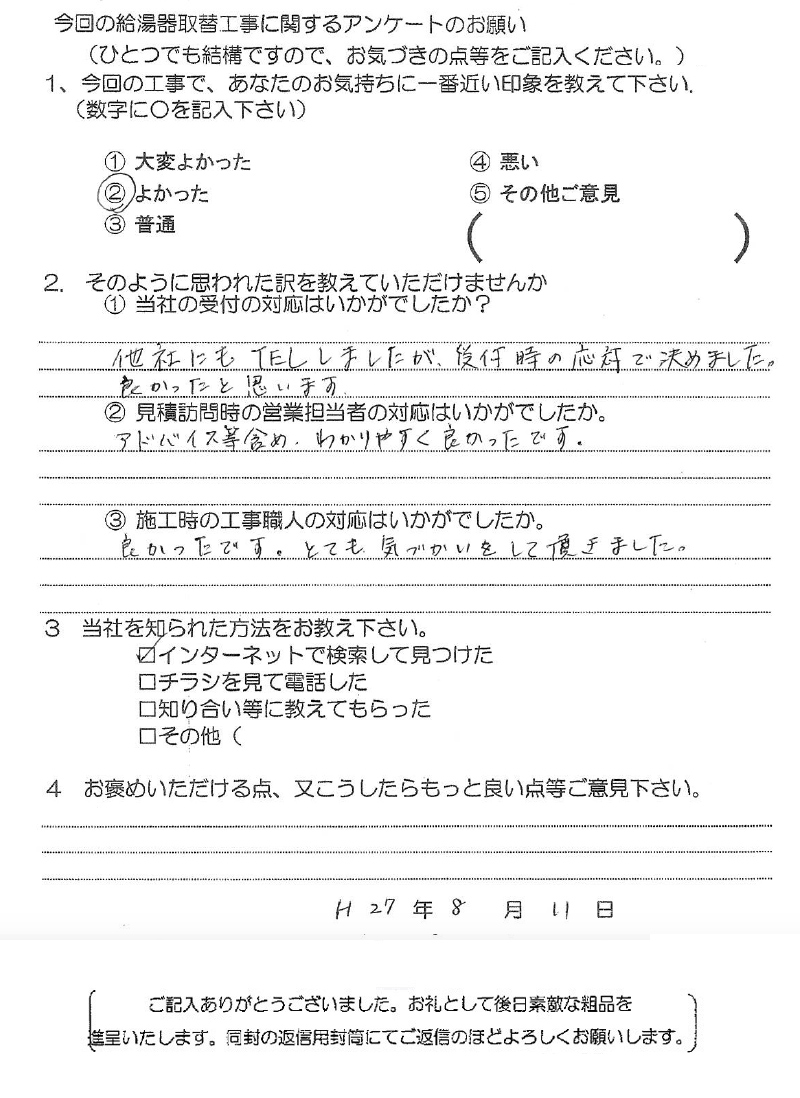 今回の給湯器取替工事に関するアンケートのお願い
（ひとつでも結構ですので、お気づきの点等をご記入ください。）
1、今回の工事で、あなたのお気持ちに一番近い印象を教えて下さい.
（数字に〇を記入下さい）
① 大変よかった ④ 悪い
② よかった ⑤ その他ご意見
③ 普通 （ ）
2. そのように思われた訳を教えていただけませんか
① 当社の受付の対応はいかがでしたか？
他社にも TELしましたが、受付時の応対で決めました。
良かったと思います
② 見積訪問時の営業担当者の対応はいかがでしたか。
アドバイス等含め、わかりやすく良かったです。
③ 施工時の工事職人の対応はいかがでしたか。
良かったです。とても気づかいをして頂きました。
3 当社を知られた方法をお教え下さい。
☑インターネットで検索して見つけた
□チラシを見て電話した
□知り合い等に教えてもらった
□その他（
4 お褒めいただける点、又こうしたらもっと良い点等ご意見下さい。
H 27 年 8 月 11 日
ご記入ありがとうございました。お礼として後日素敵な粗品を
進呈いたします。同封の返信用封筒にてご返信のほどよろしくお願いします。